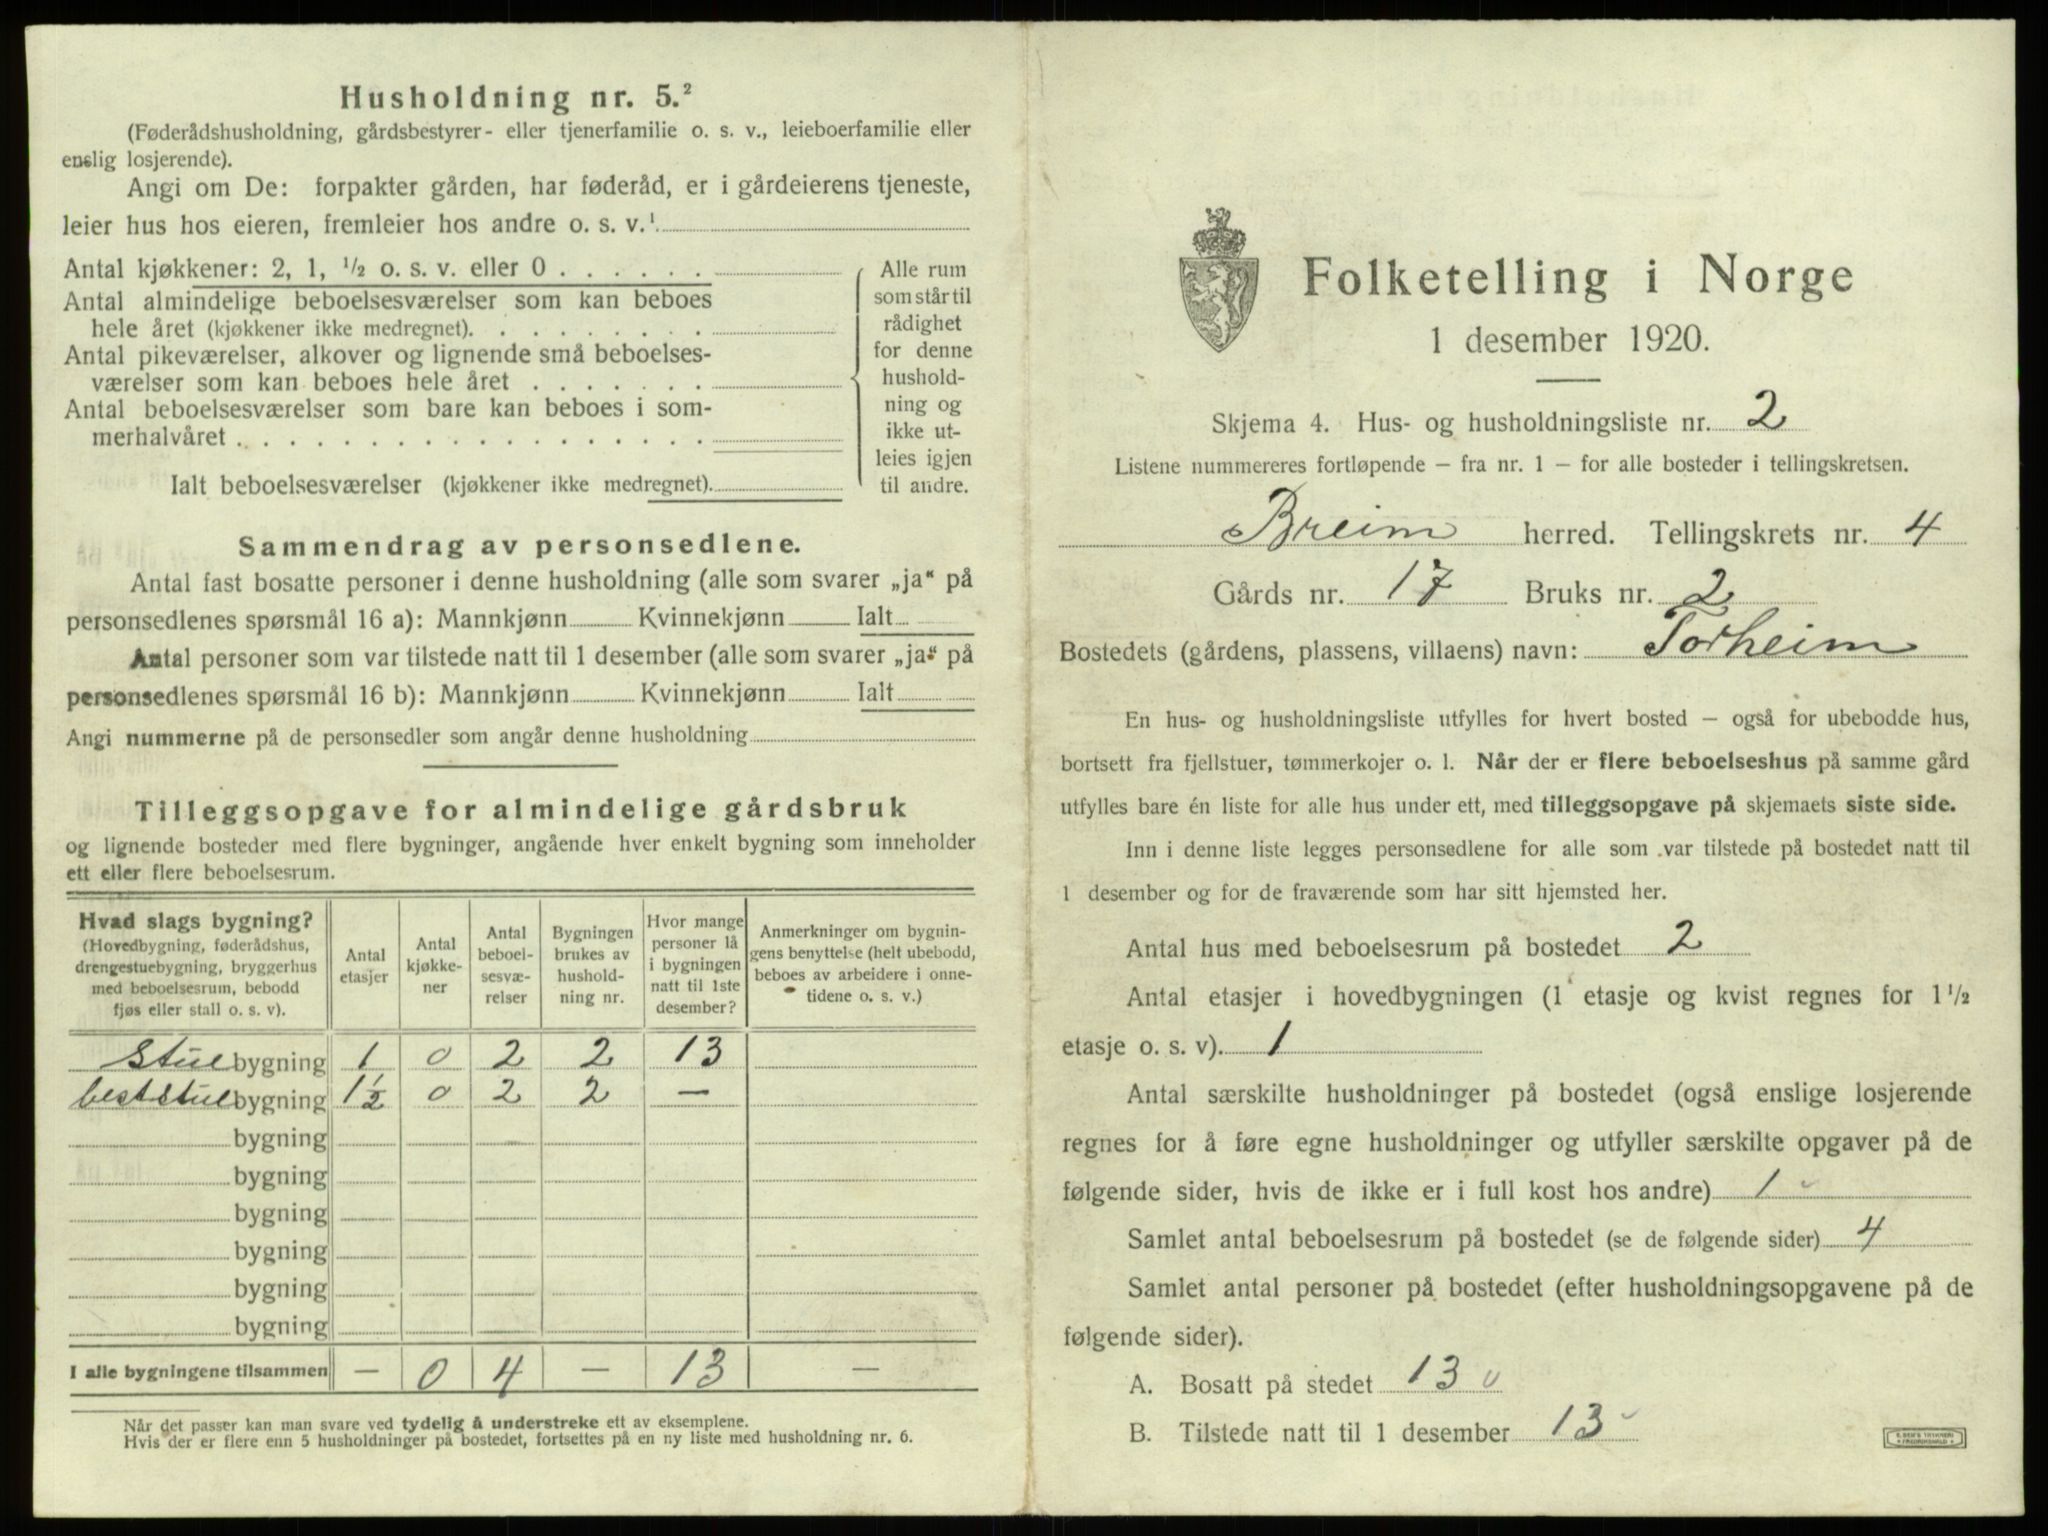 Husholdning nr. 5.²
(Føderådshusholdning, gårdsbestyrer- eller tjenerfamilie o. s. v., leieboerfamilie eller
enslig losjerende).
Angi om De: forpakter gården, har føderåd, er i gårdeierens tjeneste,
leier hus hos eieren, fremleier hos andre o. s. v.¹
Antal kjøkkener: 2, 1, ½ o. s. v. eller 0 . . . . . .
Antal almindelige beboelsesværelser som kan beboes
hele året (kjøkkener ikke medregnet). . . . . . . . .
Antal pikeværelser, alkover og lignende små beboelses-
værelser som kan beboes hele året . . . . . . .
Antal beboelsesværelser som bare kan beboes i som-
merhalvåret . . . . . . . . . . . . . . . . . .
Ialt beboelsesværelser (kjøkkener ikke medregnet).
Alle rum
som står til
rådighet
for denne
hushold-
ning og
ikke ut-
leies igjen
til andre.
Sammendrag av personsedlene.
Antal fast bosatte personer i denne husholdning (alle som svarer „ja“ på
personsedlenes spørsmål 16 a): Mannkjønn Kvinnekjønn Ialt
Antal personer som var tilstede natt til 1 desember (alle som svarer „ja“ på
personsedlenes spørsmål 16 b): Mannkjønn Kvinnekjønn Ialt
Angi nummerne på de personsedler som angår denne husholdning
Tilleggsopgave for almindelige gårdsbruk
og lignende bosteder med flere bygninger, angående hver enkelt bygning som inneholder
ett eller flere beboelsesrum.
Hvad slags bygning?
(Hovedbygning, føderådshus,
drengestuebygning, bryggerhus
med beboelsesrum, bebodd
fjøs eller stall o. s. v).
Antal
etasjer
Antal
kjøkke-
ner
Antal
beboel-
sesvæ-
relser
Bygningen
brukes av
hushold-
ning nr.
Hvor mange
personer lå
i bygningen
natt til 1ste
desember?
Anmerkninger om bygnin-
gens benyttelse (helt ubebodd,
beboes av arbeidere i onne-
tidene o. s. v.)
Stuebygning 1 0 2 2 13
beststuebygning 1½ 0 2 2 —
bygning
bygning
bygning
bygning
bygning
bygning
I alle bygningene tilsammen — 0 4 — 13 —
Når det passer kan man svare ved tydelig å understreke ett av eksemplene.
Hvis der er flere enn 5 husholdninger på bostedet, fortsettes på en ny liste med husholdning nr. 6.
Folketelling i Norge
1 desember 1920.
Skjema 4. Hus- og husholdningsliste nr. 2
Listene nummereres fortløpende – fra nr. 1 – for alle bosteder i tellingskretsen.
Breim herred. Tellingskrets nr. 4
Gårds nr. 17 Bruks nr. 2
Bostedets (gårdens, plassens, villaens) navn: Torheim
En hus- og husholdningsliste utfylles for hvert bosted – også for ubebodde hus,
bortsett fra fjellstuer, tømmerkojer o. l. Når der er flere beboelseshus på samme gård
utfylles bare én liste for alle hus under ett, med tilleggsopgave på skjemaets siste side.
Inn i denne liste legges personsedlene for alle som var tilstede på bostedet natt til
1 desember og for de fraværende som har sitt hjemsted her.
Antal hus med beboelsesrum på bostedet 2
Antal etasjer i hovedbygningen (1 etasje og kvist regnes for 1½
etasje o. s. v). 1
Antal særskilte husholdninger på bostedet (også enslige losjerende
regnes for å føre egne husholdninger og utfyller særskilte opgaver på de
følgende sider, hvis de ikke er i full kost hos andre) 1
Samlet antal beboelsesrum på bostedet (se de følgende sider) 4
Samlet antal personer på bostedet (efter husholdningsopgavene på de
følgende sider).
A. Bosatt på stedet 13
B. Tilstede natt til 1 desember 13